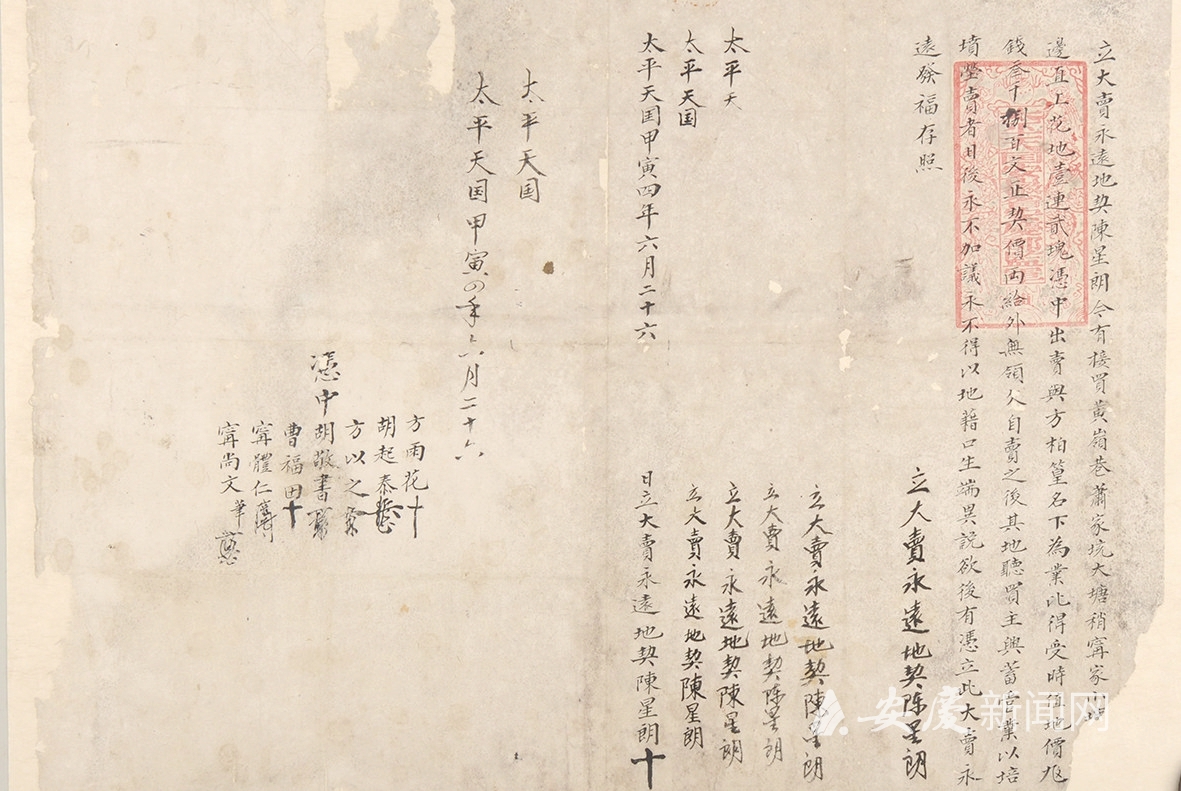 立大賣永遠地契陳星朗今有接買黃嶺巷蕭家坑大塘稍甯家山
邊直上花地壹連貳塊憑中出賣與方柏篁名下為業比得受時值地價
錢叁千捌百文正契價両給外無領欠自賣之後其地聽買主興蓄管業以培
墳塋賣者日後永不加議永不得以地藉口生端異説欲後有憑立此大賣永
遠發福存照
立大賣永遠地契陈星朗
立大賣永遠地契陳星朗
立大賣永遠地契陈星朗
太平天
立大賣永遠地契陳星朗
太平天国
立大賣永遠地契陳星朗
太平天囯甲寅四年六月二十六
日立大賣永遠地契陳星朗十
太平天国
太平天国甲寅四年六月二十六
方雨花十
胡起泰
方以之
憑中胡敬書
曹福田十
甯體仁
甯尚文華
安慶新闻网